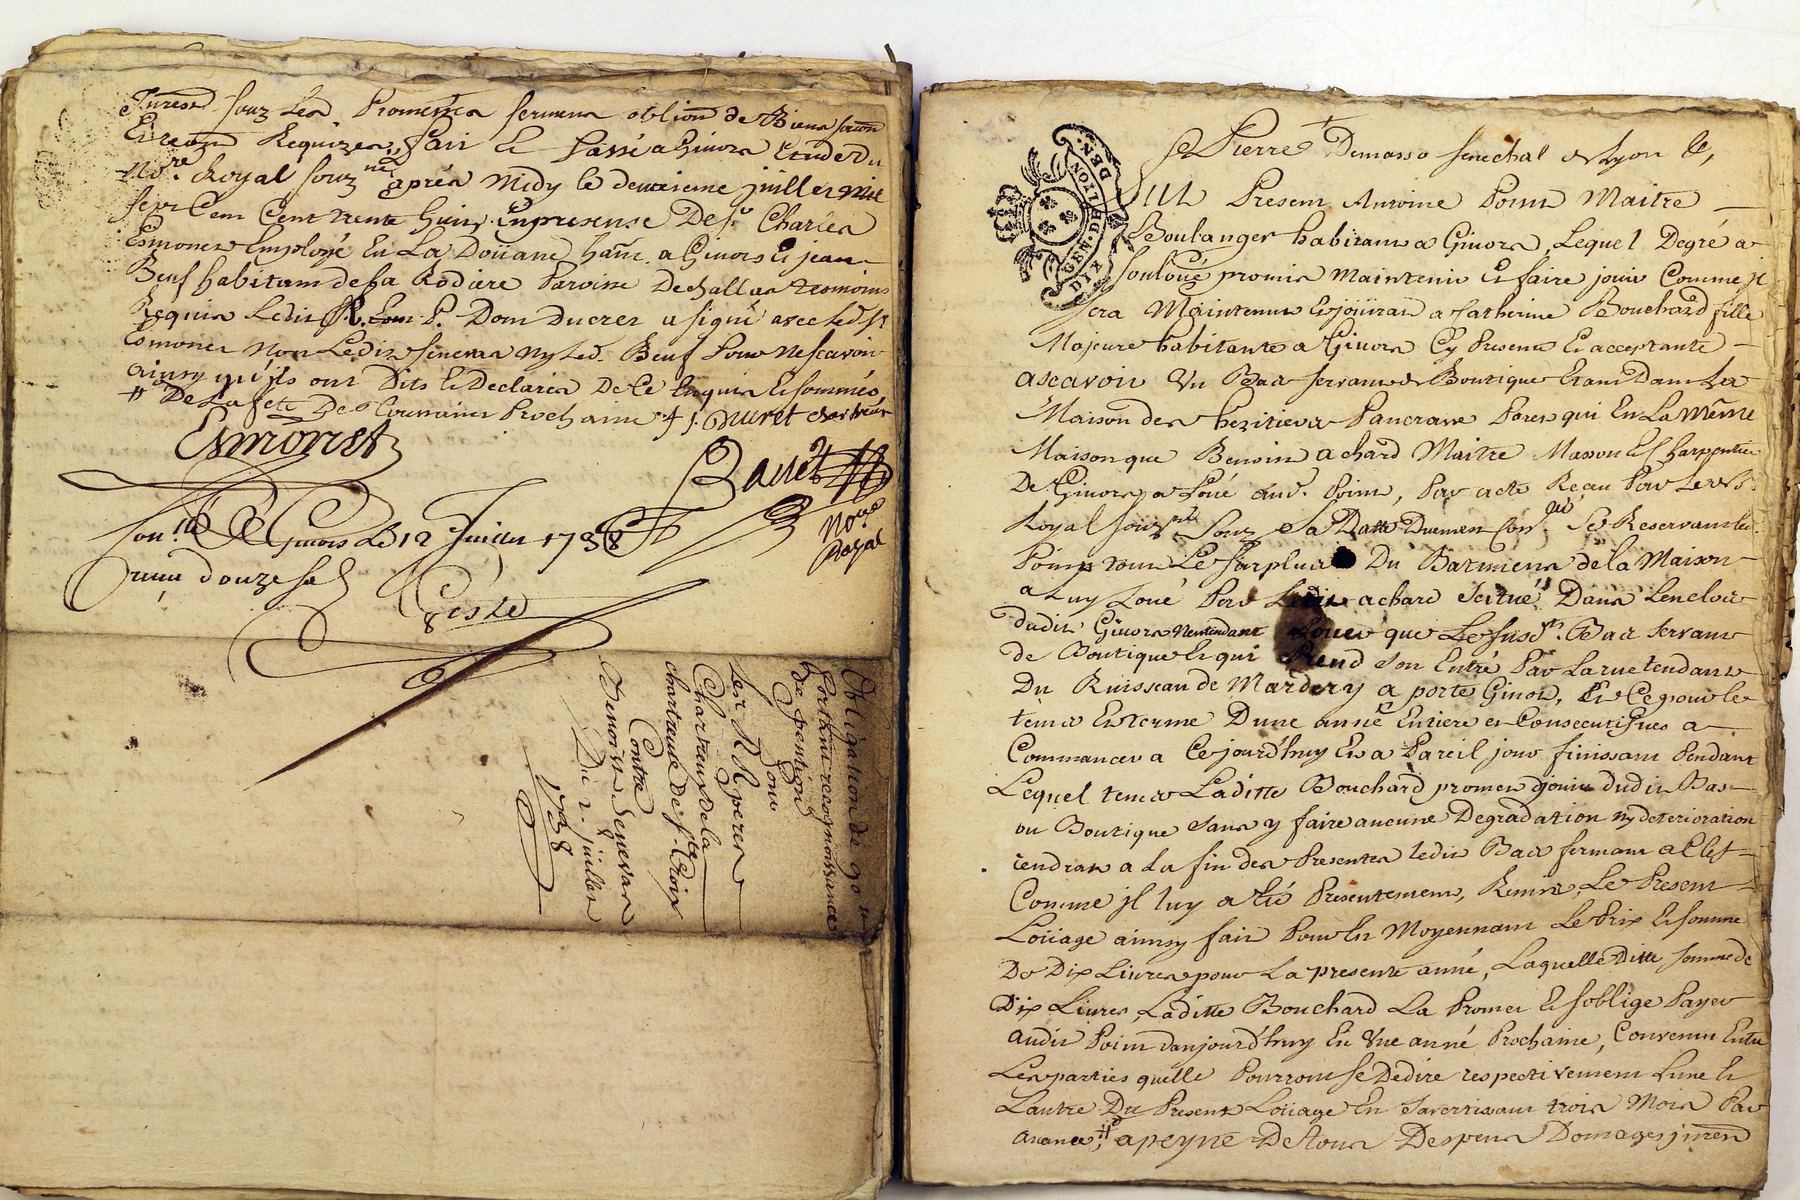 souz les Promesses sermens oblion de Biens
Requizes, fait & Passé a Givors Etude du
No.re Royal souz.né après Midy le deuxieme juillet mil
sept Cent Cent trente huit. En presense De s.r Charles
Esmonet Employé En La Doüane, hañt. a Givors & jean
Beuf habitant de La Rodiere Paroisse De challas temoins
Requis Ledit R. P. Dom Ducret a signé avec led. s.r
Esmonet Non Ledit Senevas ny Led. Beuf Pour ne scavoir
ainsy qu'ils ont Dits & Declarés De Ce Enquis & sommés
# De La fete De Prochaine # j. Ducret chartreux
Esmonet
Baret
No.re
Royal
a Givors Le 12 Juillet 1738
Receu douze sols
Giste
Obligation de 90 #
Portant recognoissance
de pention
Pour
Les RR peres
Chartreux de la
chartreuse De s.te Croix
Contre
Benoist Senevas
Du 2. juillet
1738
Pierre Demasso senechal de Lyon &,
GEN. DE LYON
DIX DEN.
Fut Present Antoine Point Maitre
Boulanger habitant a Givors Lequel De gré a
soulöué promis Maintenir & faire jouir Comme jl
sera Maintenue & joüiran a Catherine Bouchard fille
Majeure habitante a Givors Cy Presente & acceptante
ascavoir Un Bas servant de Boutique Etant Dans La
Maison des heritiers Pancrasse Pores qui En La Même
Maison que Benoit achard Maitre Masson & Charpentier
De Givors a Loué aud. Point, Par acte Receu Par Le No.re
Royal souz.né Souz sa Datte Duement Con.lé Se Reservant led.
Point tout Le surplus Du Batiment de la Maison
a Luy Loué Par Ledit achard Scitué Dans Lenclos
dudit Givors Nentendant Louer que Le susd.t Bas servant
de Boutique & qui Prend son Entrée Par La rue tendant
Du Ruisseau de Mardery a porte Givors, & Ce pour le
tems & terme Dune année Entiere et Consecutifves a
Commancer a Cejourd'huy & a Pareil jour finissant Pendant
Lequel tems Laditte Bouchard promet djouir dudit Bas
ou Boutique sans y faire aucune Degradation ny deterioration
rendra a La fin des Presentes ledit Bas fermant a Clef
Comme jl luy a été Presentement, Remis, Le Present
Loüage ainsy fait Pour & Moyennant Le Prix & somme
De Dix Livres pour La presente année, Laquelle Ditte somme de
Dix Livres Laditte Bouchard La Promet & soblige Payer
audit Point danjourd'huy En Une année Prochaine, Convenu Entre
Les parties quelle Pourront se Dedire respectivement Lune &
Lautre Du Present Loüage En Savertissant trois Mois Par
avance,# a peyne De tous Despens Domages jnterest